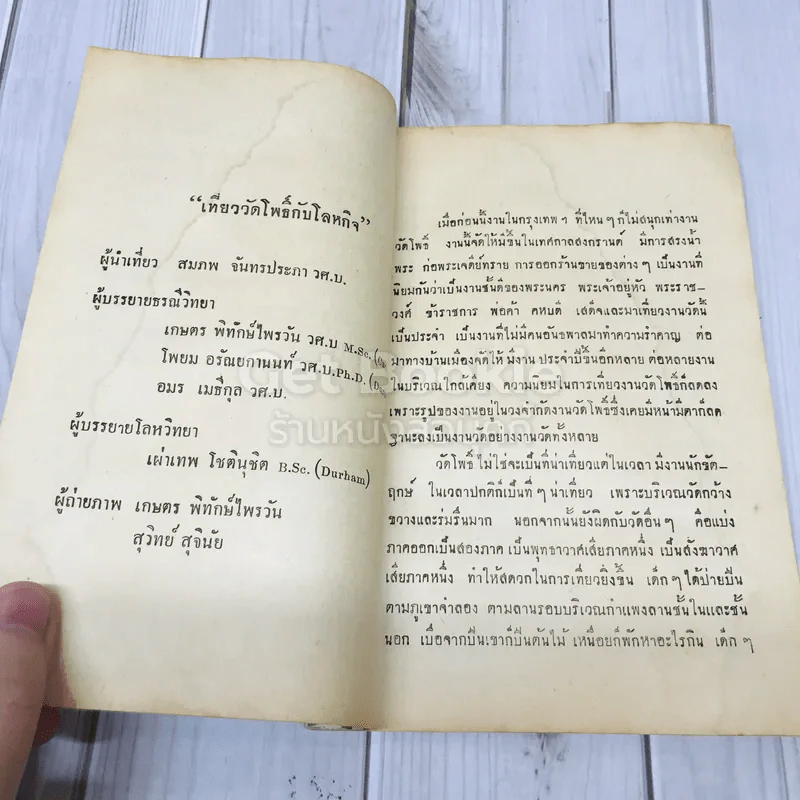 “เที่ยววัดโพธิ์กับโลหกิจ”
ผู้นำเที่ยว สมภพ จันทรประภา วศ.บ.
ผู้บรรยายธรณีวิทยา
เกษตร พิทักษ์ไพรวัน วศ.บ M.Sc.
โพยม อรัณยกานนท์ วศ.บ.Ph.D.
อมร เมธีกุล วศ.บ.
ผู้บรรยายโลหวิทยา
เผ่าเทพ โชตินุชิต B.Sc. (Durham)
ผู้ถ่ายภาพ เกษตร พิทักษ์ไพรวัน
สุวิทย์ สุจินัย
เมื่อก่อนนี้งานในกรุงเทพฯ ที่ไหนๆก็ไม่สนุกเท่างาน
วัดโพธิ์ งานนี้จัดให้มีขึ้นในเทศกาลสงกรานต์ มีการสรงน้ำ
พระ ก่อพระเจดีย์ทราย การออกร้านขายของต่างๆ เป็นงานที่
นิยมกันว่าเป็นงานชั้นดีของพระนคร พระเจ้าอยู่หัว พระราช-
วงศ์ ข้าราชการ พ่อค้า คหบดี เสด็จและมาเที่ยวงานวัดนี้
เป็นประจำ เป็นงานที่ไม่มีคนอันธพาลมาทำความรำคาญ ต่อ
มาทางบ้านเมืองจัดให้ มีงาน ประจำปีขึ้นอีกหลาย ต่อหลายงาน
ในบริเวณใกล้เคียง ความนิยมในการเที่ยวงานวัดโพธิ์ก็ลดลง
เพราะรูปของงานอยู่ในวงจำกัดงานวัดโพธิ์ซึ่งเคยมีหน้ามีตาก็ลด
ฐานะลงเป็นงานวัดอย่างงานวัดทั้งหลาย
วัดโพธิ์ ไม่ใช่จะเป็นที่น่าเที่ยวแต่ในเวลา มีงานนักขัต-
ฤกษ์ ในเวลาปกติก็เป็นที่ๆ น่าเที่ยว เพราะบริเวณวัดกว้าง
ขวางและร่มรื่นมาก นอกจากนั้นยังผิดกับวัดอื่นๆ คือแบ่ง
ภาคออกเป็นสองภาค เป็นพุทธาวาศเสียภาคหนึ่ง เป็นสังฆาวาศ
เสียภาคหนึ่ง ทำให้สดวกในการเที่ยวยิ่งขึ้น เด็กๆ ได้ป่ายปีน
ตามภูเขาจำลอง ตามลานรอบบริเวณกำแพงลานชั้นในและชั้น
นอก เบื่อจากปีนเขาก็ปีนต้นไม้ เหนื่อยก็พักหาอะไรกิน เด็กๆ
Get Bookie
ร้านหนังสือเก็ท